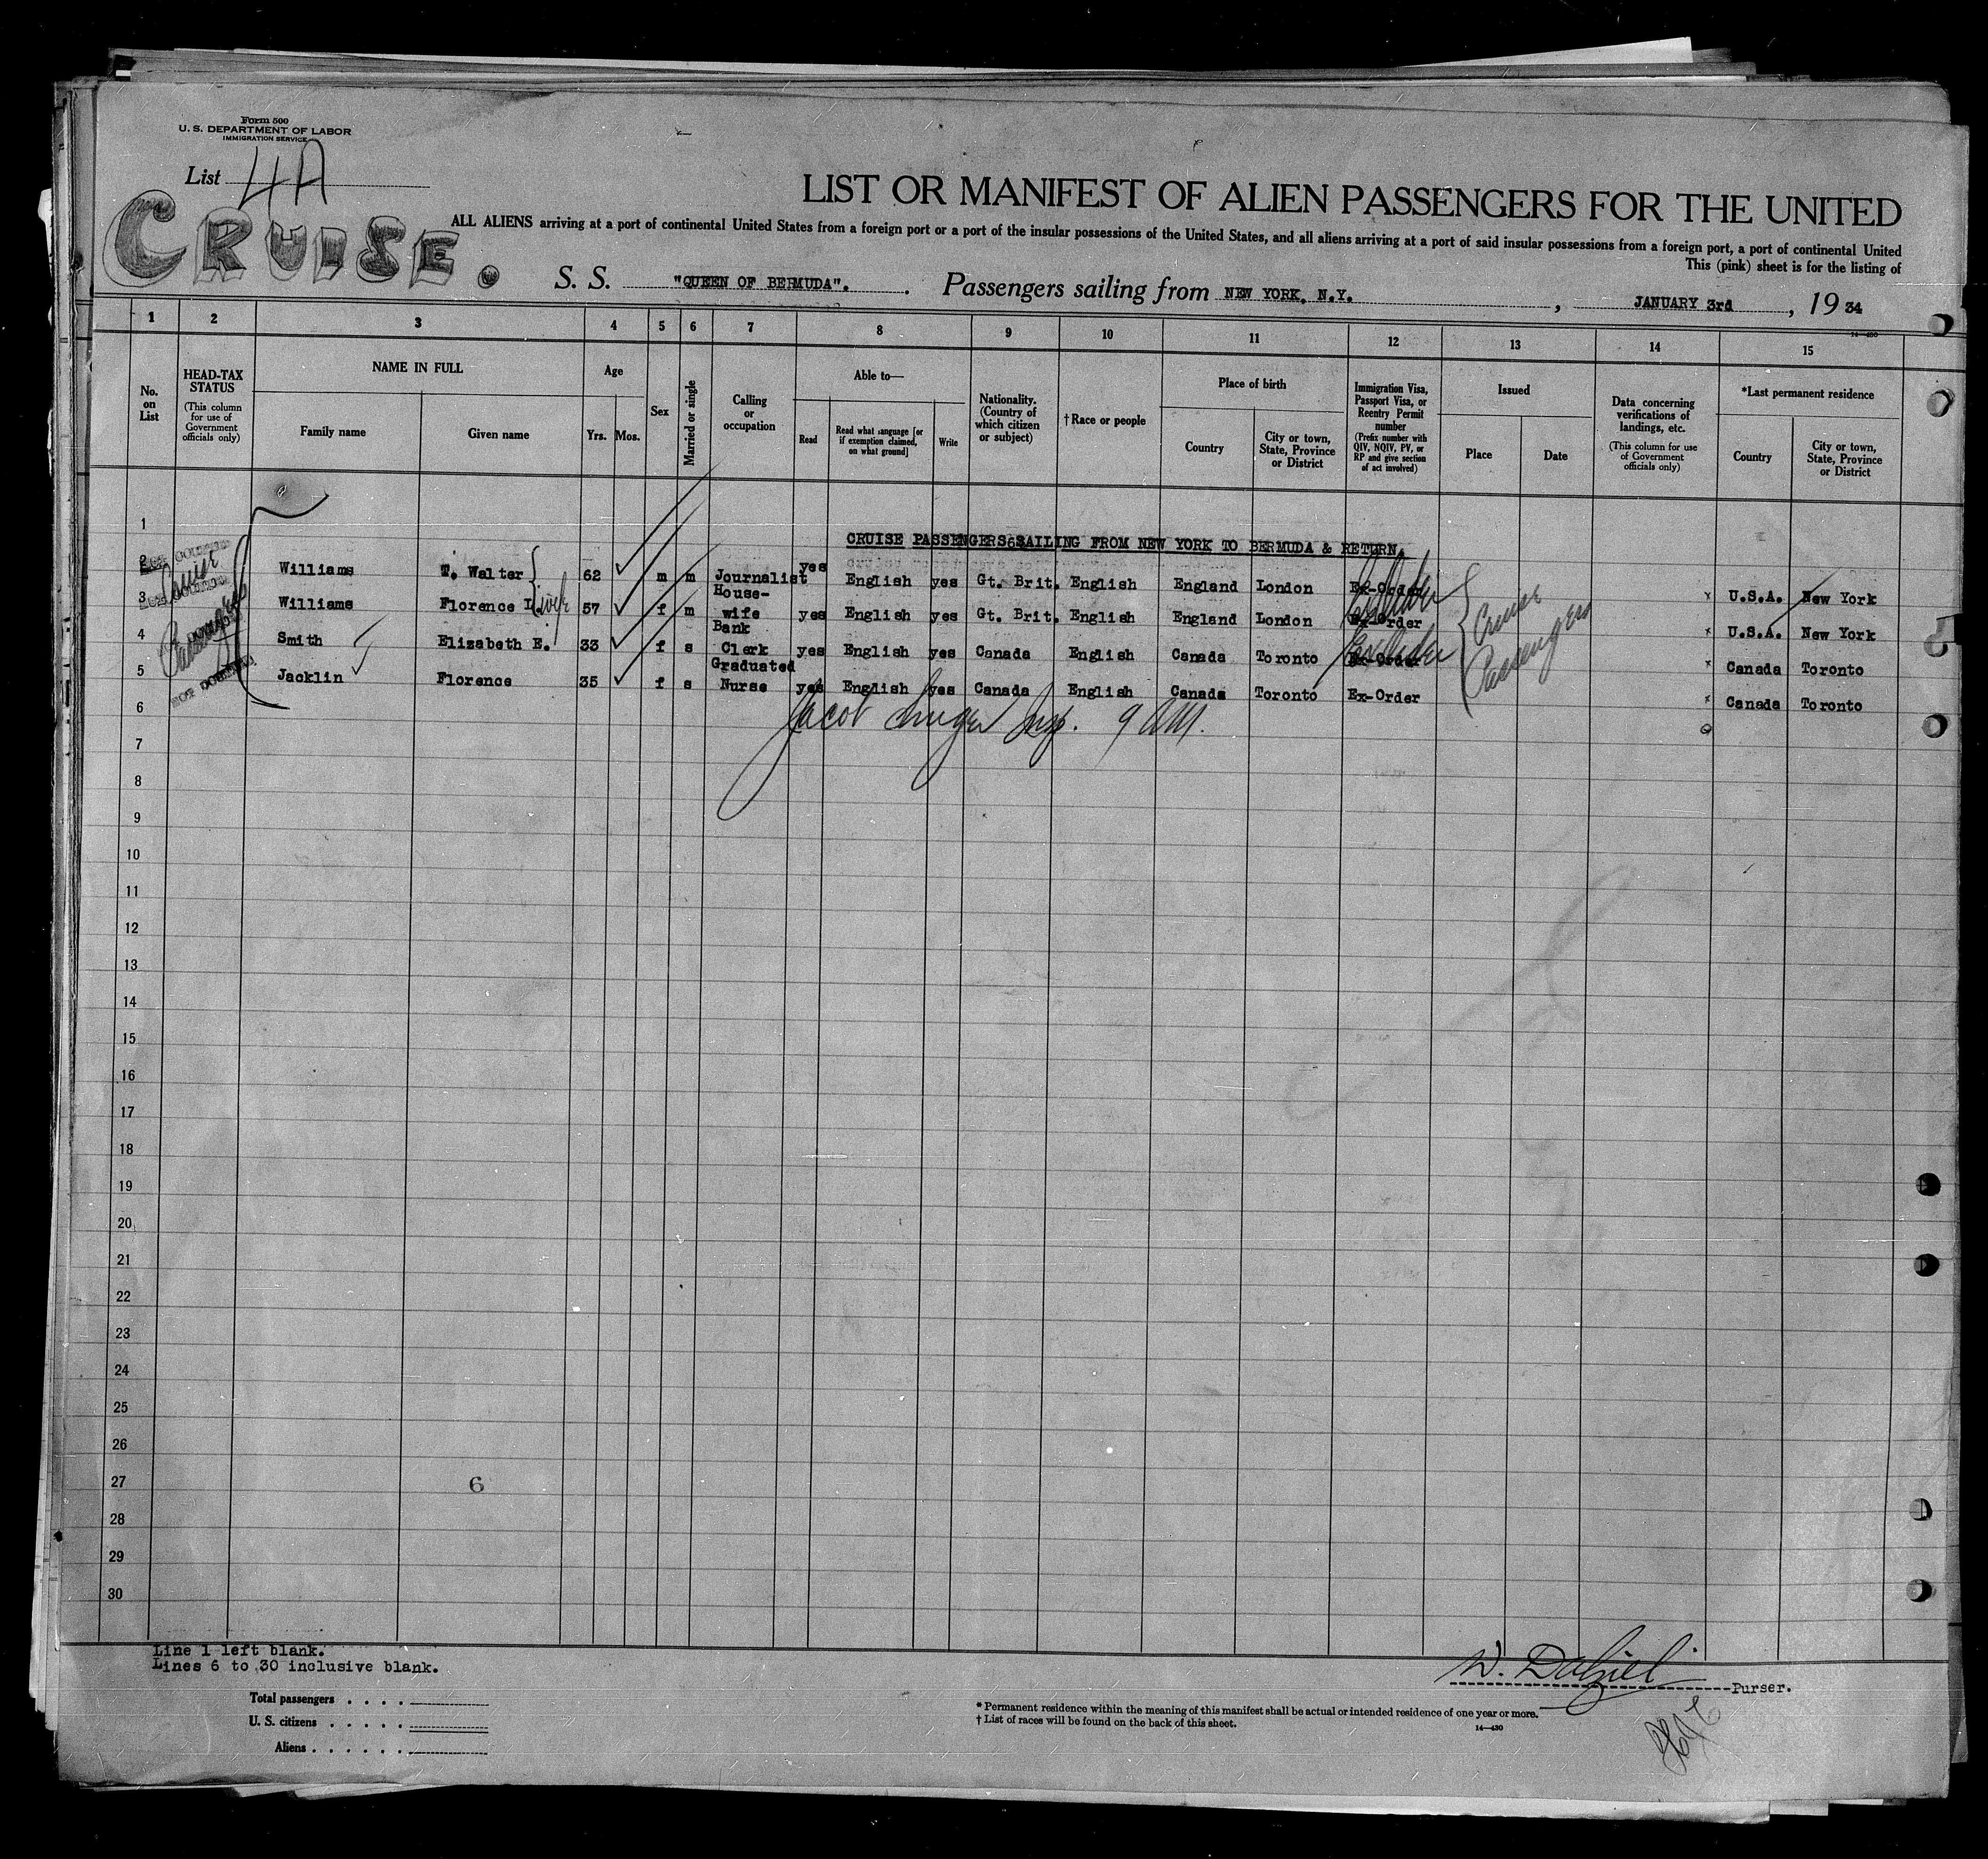 Form 500
U. S. DEPARTMENT OF LABOR
IMMIGRATION SERVICE
List 4A
CRUISE.
LIST OR MANIFEST OF ALIEN PASSENGERS FOR THE UNITED
ALL ALIENS arriving at a port of continental United States from a foreign port or a port of the insular possessions of the United States, and all aliens arriving at a port of said insular possessions from a foreign port, a port of continental United
This (pink) sheet is for the listing of
S. S. "QUEEN OF BERMUDA". Passengers sailing from NEW YORK, N.Y., JANUARY 3rd, 1934
14—430
1 2 3 4 5 6 7 8 9 10 11 12 13 14 15
No. on List
HEAD-TAX STATUS
(This column for use of Government officials only)
NAME IN FULL
Family name
Given name
Age
Yrs. Mos.
Sex
Married or single
Calling or occupation
Able to—
Read
Read what language [or if exemption claimed, on what ground]
Write
Nationality. (Country of which citizen or subject)
†Race or people
Place of birth
Country
City or town, State, Province or District
Immigration Visa, Passport Visa, or Reentry Permit number
(Prefix number with QIV, NQIV, PV, or RP and give section of act involved)
Issued
Place
Date
Data concerning verifications of landings, etc.
(This column for use of Government officials only)
*Last permanent residence
Country
City or town, State, Province or District
1
CRUISE PASSENGERS SAILING FROM NEW YORK TO BERMUDA & RETURN.
2 Williams T. Walter 62 m m Journalist yes English yes Gt. Brit. English England London Ex-Order U.S.A. New York
3 Williams Florence L. wife 57 f m House-wife yes English yes Gt. Brit. English England London Ex-Order U.S.A. New York
4 Smith Elizabeth E. 33 f s Bank Clerk yes English yes Canada English Canada Toronto Ex-Order Canada Toronto
5 Jacklin Florence 35 f s Graduated Nurse yes English yes Canada English Canada Toronto Ex-Order Canada Toronto
Cruise
Passengers
Cruise
Passengers
6
Jacob Insp. 9 AM.
7
8
9
10
11
12
13
14
15
16
17
18
19
20
21
22
23
24
25
26
27 6
28
29
30
Line 1 left blank.
Lines 6 to 30 inclusive blank.
W. Dalziel Purser.
Total passengers
U. S. citizens
Aliens
* Permanent residence within the meaning of this manifest shall be actual or intended residence of one year or more.
† List of races will be found on the back of this sheet.
14—430